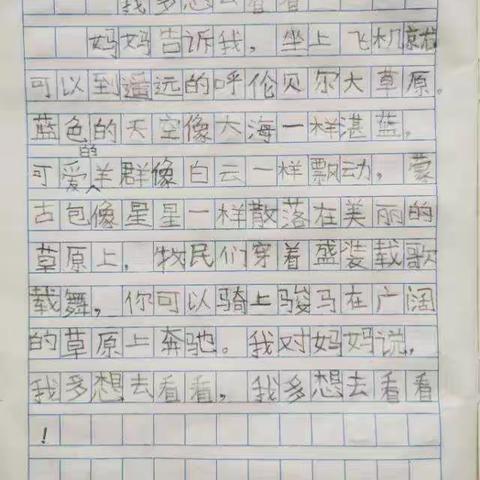 我多想去看看
妈妈告诉我，坐上飞机就
可以到遥远的呼伦贝尔大草原。
蓝色的天空像大海一样湛蓝。
可爱的羊群像白云一样飘动，蒙
古包像星星一样散落在美丽的
草原上，牧民们穿着盛装载歌
载舞，你可以骑上骏马在广阔
的草原上奔驰。我对妈妈说，
我多想去看看，我多想去看看
！